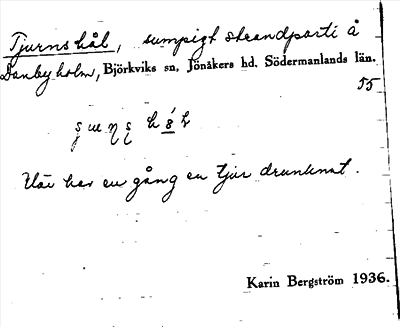 Tjurnshål, sumpigt strandparti å
Danbyholm, Björkviks sn, Jönåkers hd. Södermanlands län.
55
Här har en gång en tjur drunknat.
Karin Bergström 1936.